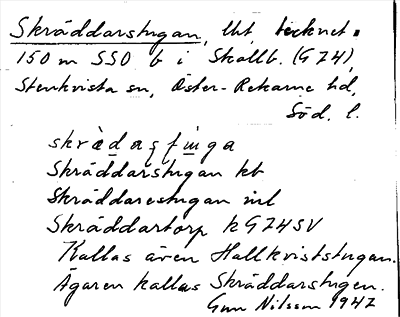 Skräddarstugan, lht, tecknet.
150 m SSO b i Skallb. (G74),
Stenkvista sn, Öster-Rekarne hd,
Söd. l.
Skräddarstugan kb
Skräddarestugan inl
Skräddartorp k G74SV
Kallas även Hallkviststugan.
Ägaren kallas Skräddarstugen.
Gun Nilsson 1947